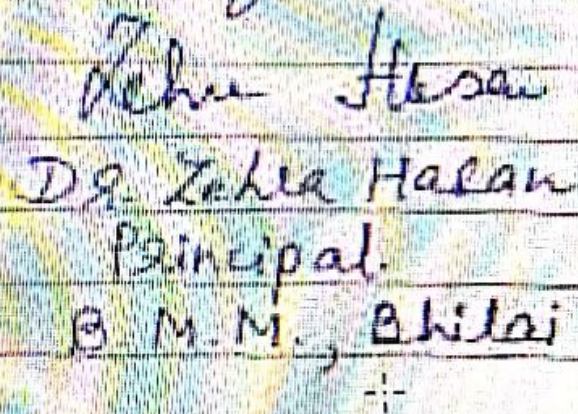 Zehra Hasan
Dr Zehra Hasan
Principal.
B M.M., Bhilai